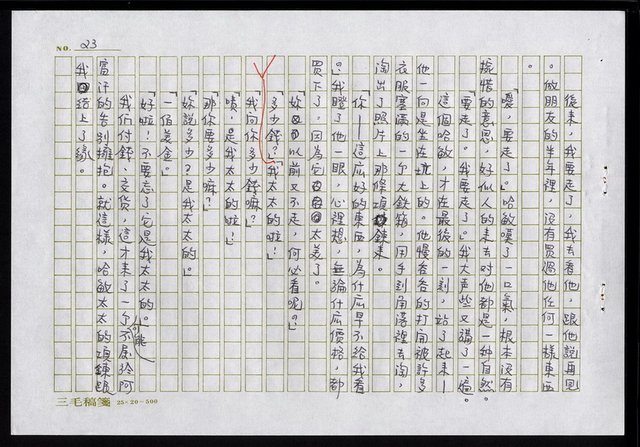 NO. 23
後來，我要走了，我去看他，跟他說再見
。做朋友的半年裡，沒有買過他任何一樣東西
。
「噢，要走了。」哈敏嘆了一口氣，根本沒有
挽惜的意思，好似人的來去對他都是一種自然。
「要走了。我要走了。」我大声些又講了一遍。
這個哈敏，才在最後的一刻，站了起來——
他一向是坐在坑上的。他慢吞吞的打開被許多
衣服塞滿的一个大鉄箱，用手到角落裡去淘，
淘出了照片上那條項鍊來。
「你——這麼好的東西，為什麼早不給我看
。」我瞪了他一眼，心裡想，無論什麼價格，都
買下了，因為它太美了。
「妳以前又不走，何必看呢。」
「多少錢？」「我太太的啦！」
「我问你多少錢嘛？」
「嘖，是我太太的啦！」
「那你要多少嘛？」
「妳說多少？是我太太的。」
「一佰美金。」
「好啦！不要忘了它是我太太的。」
我們付錢、交貨，這才來了一个不屬於阿
可能
富汗的告別擁抱。就這樣，哈敏太太的項鍊跟
我结上了緣。
三毛稿箋 25×20=500